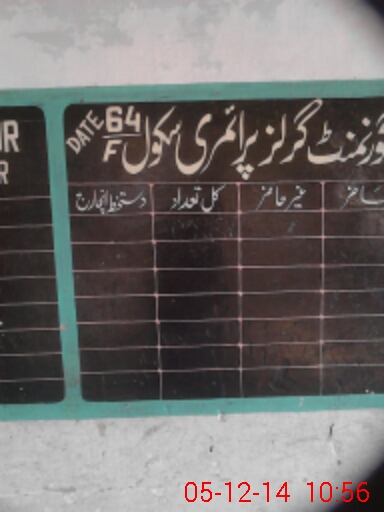 گورنمنٹ گرلز پرائمری سکول 64/F DATE
حاضر غیر حاضر کل تعداد دستخط انچارج
05-12-14 10:56